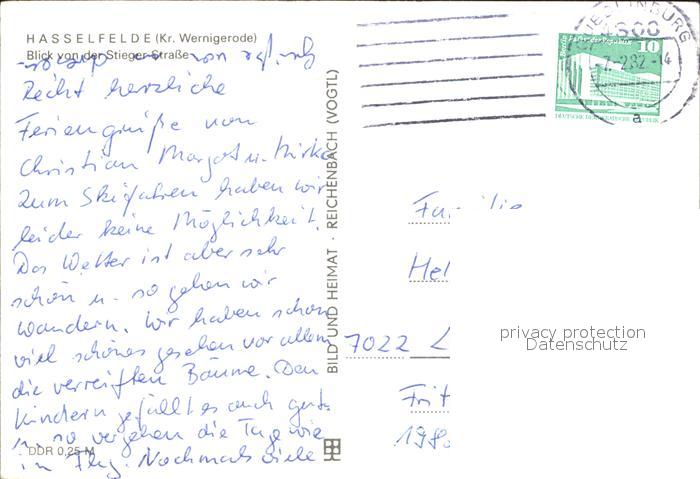 HASSELFELDE (Kr. Wernigerode)
Blick von der Stieger Straße
Recht herzliche
Feriengrüße von
Christian Margot u. Mirko
Zum Skifahren haben wir
leider keine Möglichkeit.
Das Wetter ist aber sehr
schön u. so gehen wir
wandern. Wir haben schon
viel schönes gesehen vor allem
die verreiften Bäume. Den
Kindern gefällt es auch gut
u. so vergehen die Tage wie
im Flug. Nochmals viele
DDR 0,25 M
BILD UND HEIMAT · REICHENBACH (VOGTL)
QUEDLINBURG
-7.-2.82.-14
a
10
DEUTSCHE DEMOKRATISCHE REPUBLIK
Familie
Hel
7022 L
Frit
privacy protection
Datenschutz